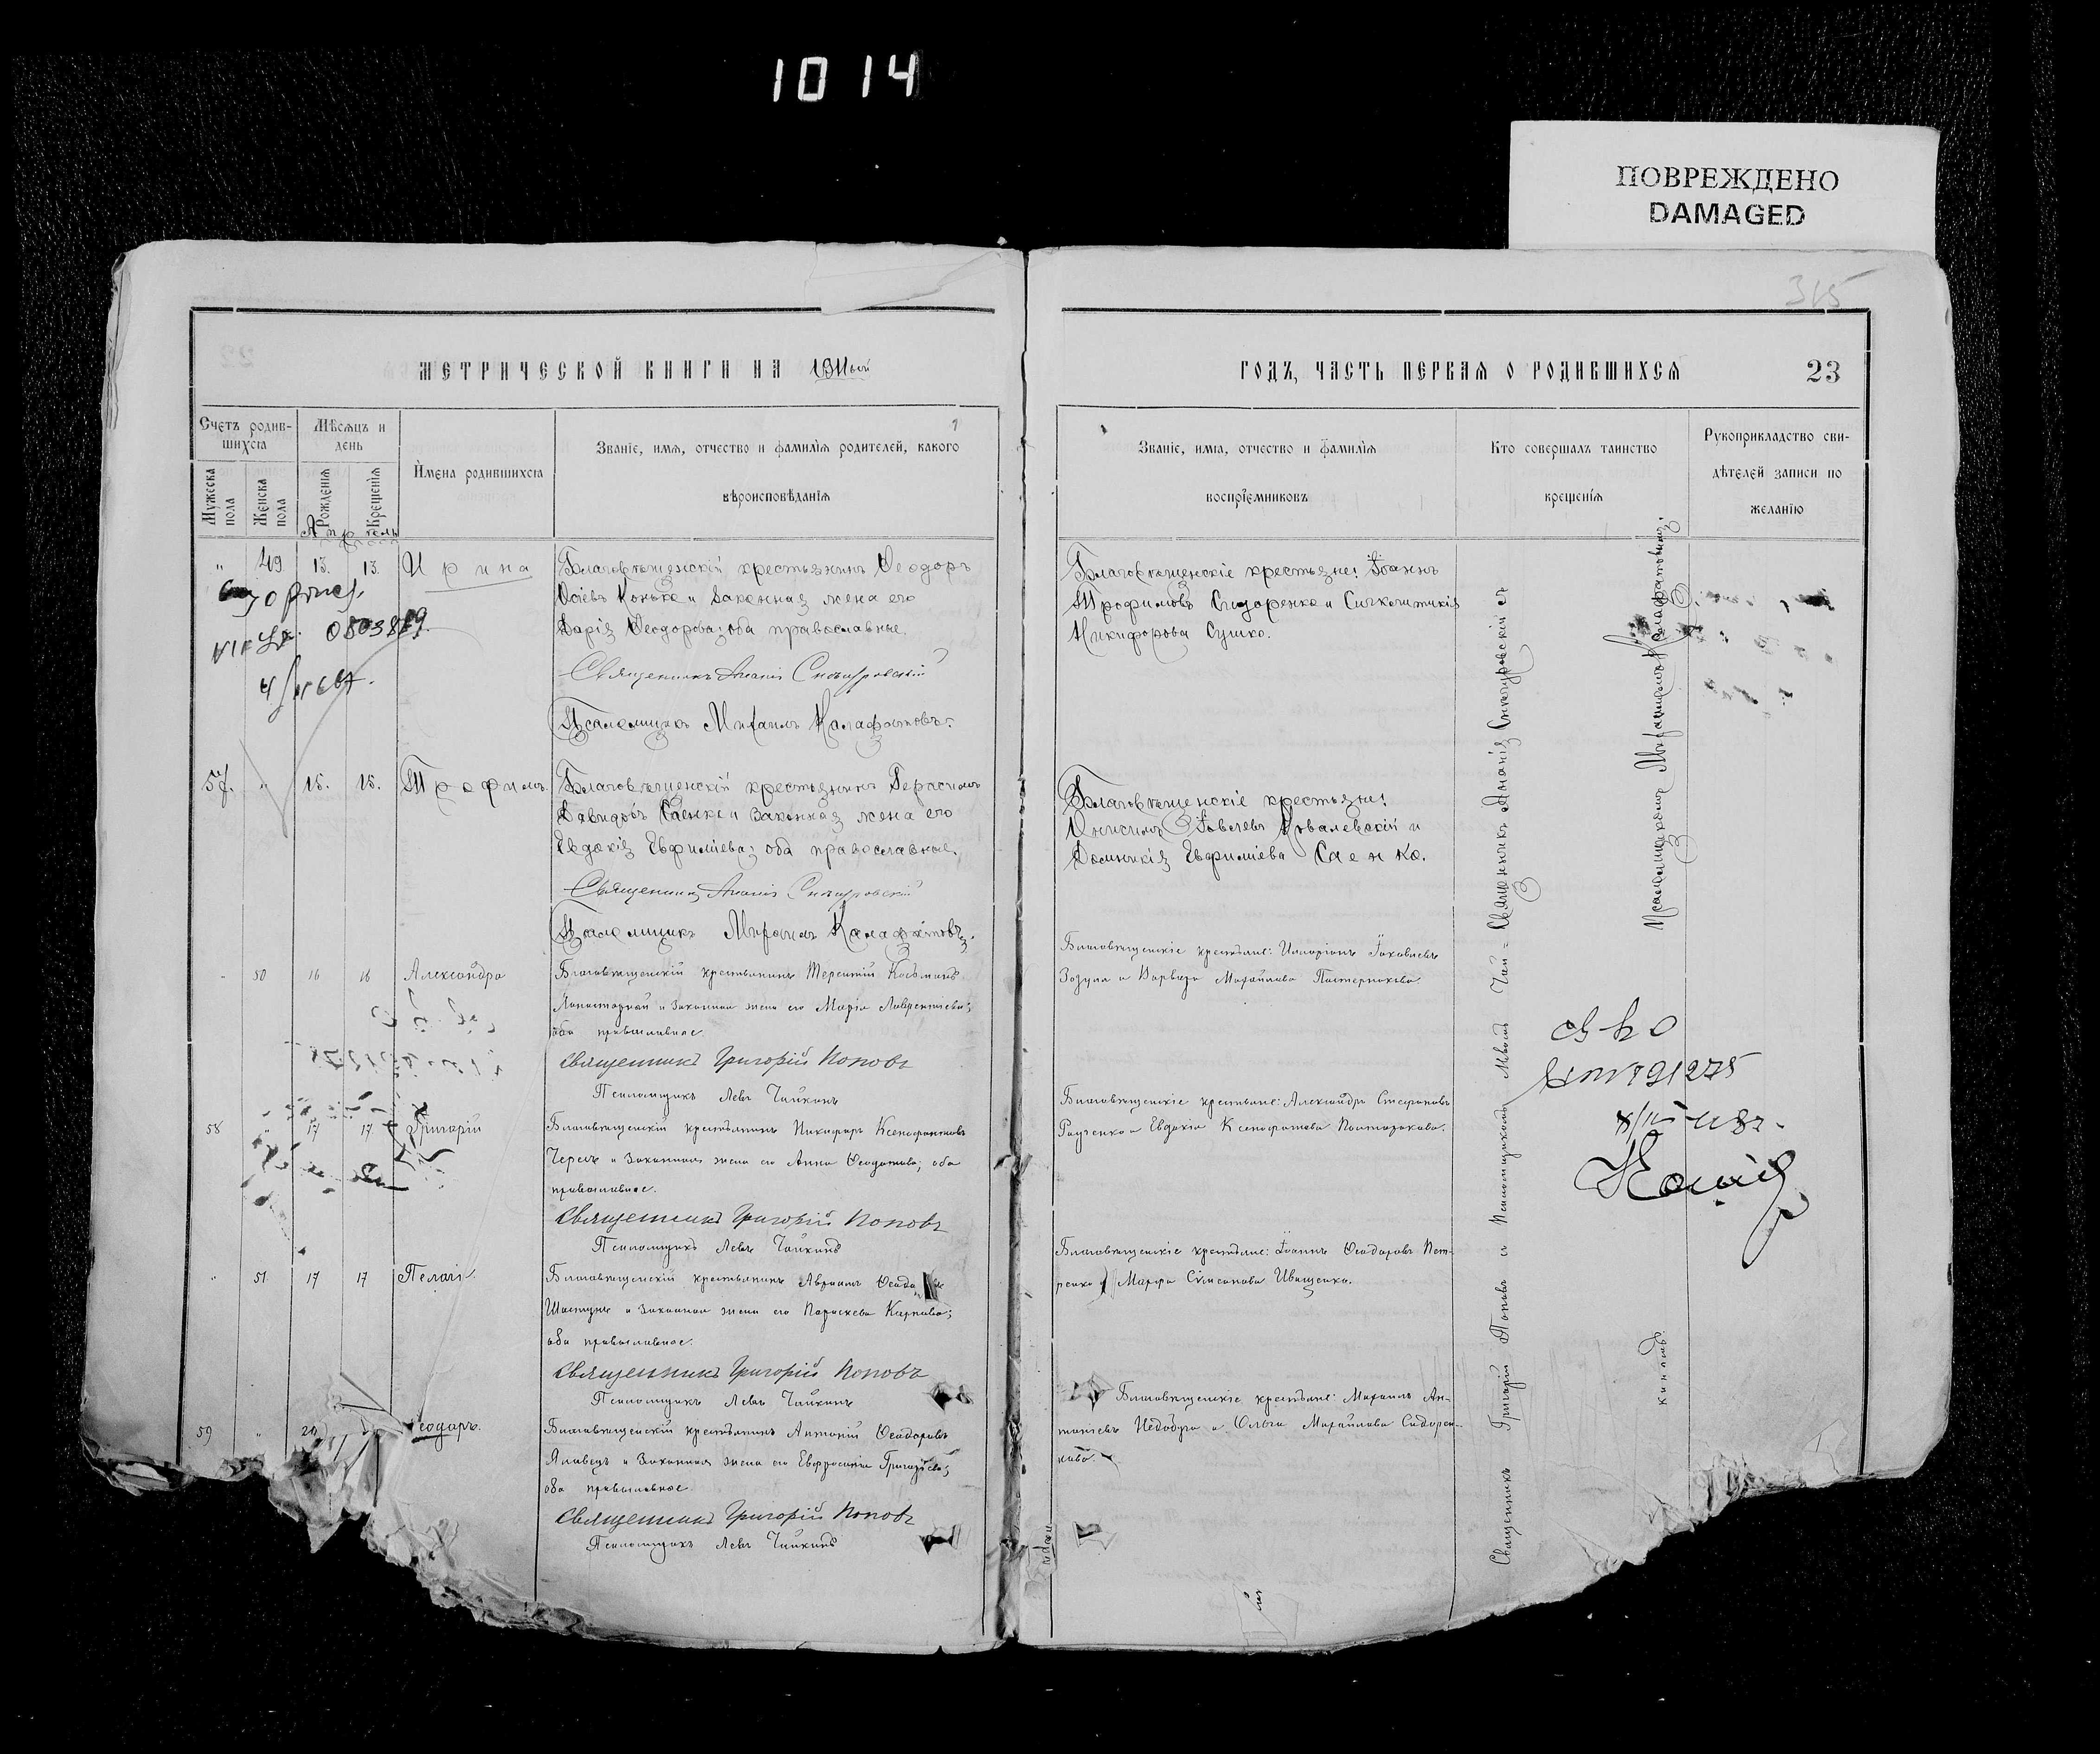 1014
ПОВРЕЖДЕНО
DAMAGED
315
МЕТРИЧЕСКОЙ КНИГИ НА 1911ый
ГОДЪ, ЧАСТЬ ПЕРВАЯ О РОДИВШИХСЯ
23
Счетъ родив-
шихся
Мужеска пола
Женска пола
Мѣсяцъ и
день
Рожденія
Крещенія
Имена родившихся
Званіе, имя, отчество и фамилія родителей, какого
вѣроисповѣданія
Званіе, имя, отчество и фамилія
воспріемниковъ
Кто совершалъ таинство
крещенія
Рукоприкладство сви-
дѣтелей записи по
желанію
Апрель
" 49 13. 13. Ирина
Благовѣщенскій крестьянинъ Ѳеодоръ
Конько и законная жена его
Дарія Ѳеодорова; оба православные.
Священникъ Ананія Снѣгуровскій
Псаломщикъ Михаилъ Калафатовъ.
Благовѣщенскіе крестьяне: Іоаннъ
Трофимовъ Сидоренко и Синклитикія
Никифорова Сушко.
57. " 15. 15. Трофимъ.
Благовѣщенскій крестьянинъ Герасимъ
Давидовъ Саенко и законная жена его
Евдокія Евфиміева; оба православные.
Священникъ Ананія Снѣгуровскій
Псаломщикъ Михаилъ Калафатовъ.
Благовѣщенскіе крестьяне:
Онисимъ Іовлевъ Ковалевскій и
Домникія Евфиміева Саенко.
" 50 16 16 Александра
Благовѣщенскій крестьянинъ Терентій Косьминъ
и законная жена его Марія Лаврентіева;
оба православные.
Священникъ Григорій Поповъ
Псаломщикъ Левъ Чайкинъ
Благовѣщенскіе крестьяне: Иларіонъ Іаковлевъ
Зозуля и Варвара Михайлова Пастернакова.
58 " 17 17 Григорій
Благовѣщенскій крестьянинъ Никифоръ Ксенофонтовъ
Черезъ и законная жена его Анна Ѳеодотова; оба
православные.
Священникъ Григорій Поповъ
Псаломщикъ Левъ Чайкинъ
Благовѣщенскіе крестьяне: Александръ Стефановъ
Радченко и Евдокія Ксенофонтова
" 51 17 17 Пелагія
Благовѣщенскій крестьянинъ Авраамъ
Шаптунъ и законная жена его Параскева Карпова;
оба православные.
Священникъ Григорій Поповъ
Псаломщикъ Левъ Чайкинъ
Благовѣщенскіе крестьяне: Іоаннъ Ѳеодоровъ Пет-
ренко и Марфа Симеонова Иващенко.
59 " 20 Ѳеодоръ.
Благовѣщенскій крестьянинъ Антоній Ѳеодоровъ
Яловецъ и законная жена его Евфросинія Григорьева;
оба православные.
Священникъ Григорій Поповъ
Псаломщикъ Левъ Чайкинъ
Благовѣщенскіе крестьяне: Михаилъ Ан-
тоніевъ Недобуга и Ольга Михайлова Сидорен-
кова.
Священникъ Григорій Поповъ и Псаломщикъ Левъ Чай-
кинъ.
Священникъ Ананія Снѣгуровскій съ
Псаломщикомъ Михаиломъ Калафатовымъ.
0803889